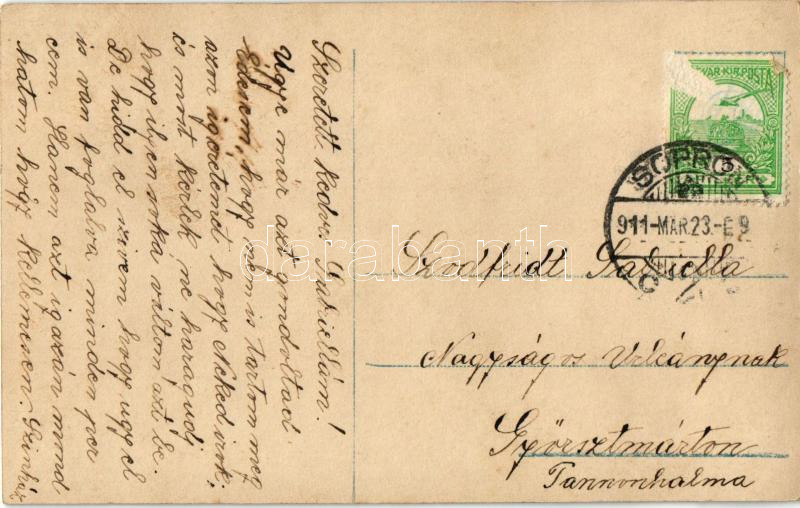 Szeretett kedves Gabriellám!
Ugye már azt gondoltad
édesem, hogy nem is tartom meg
azon igéretemet hogy Neked irok
és mint kérlek, ne haragudj
hogy ilyen soká váltom azt be.
De hidd el szivem hogy ugy el
is van foglalva minden per
cem. Hanem azt igazán mond
hatom hogy kellemesen. Szinház
MAGYAR KIR. POSTA
SOPRON
911-MÁR.23.-É 9
Szodfridt Gabriella
Nagyságos Urleánynak
Győrsztmárton
Pannonhalma
darabanth.com